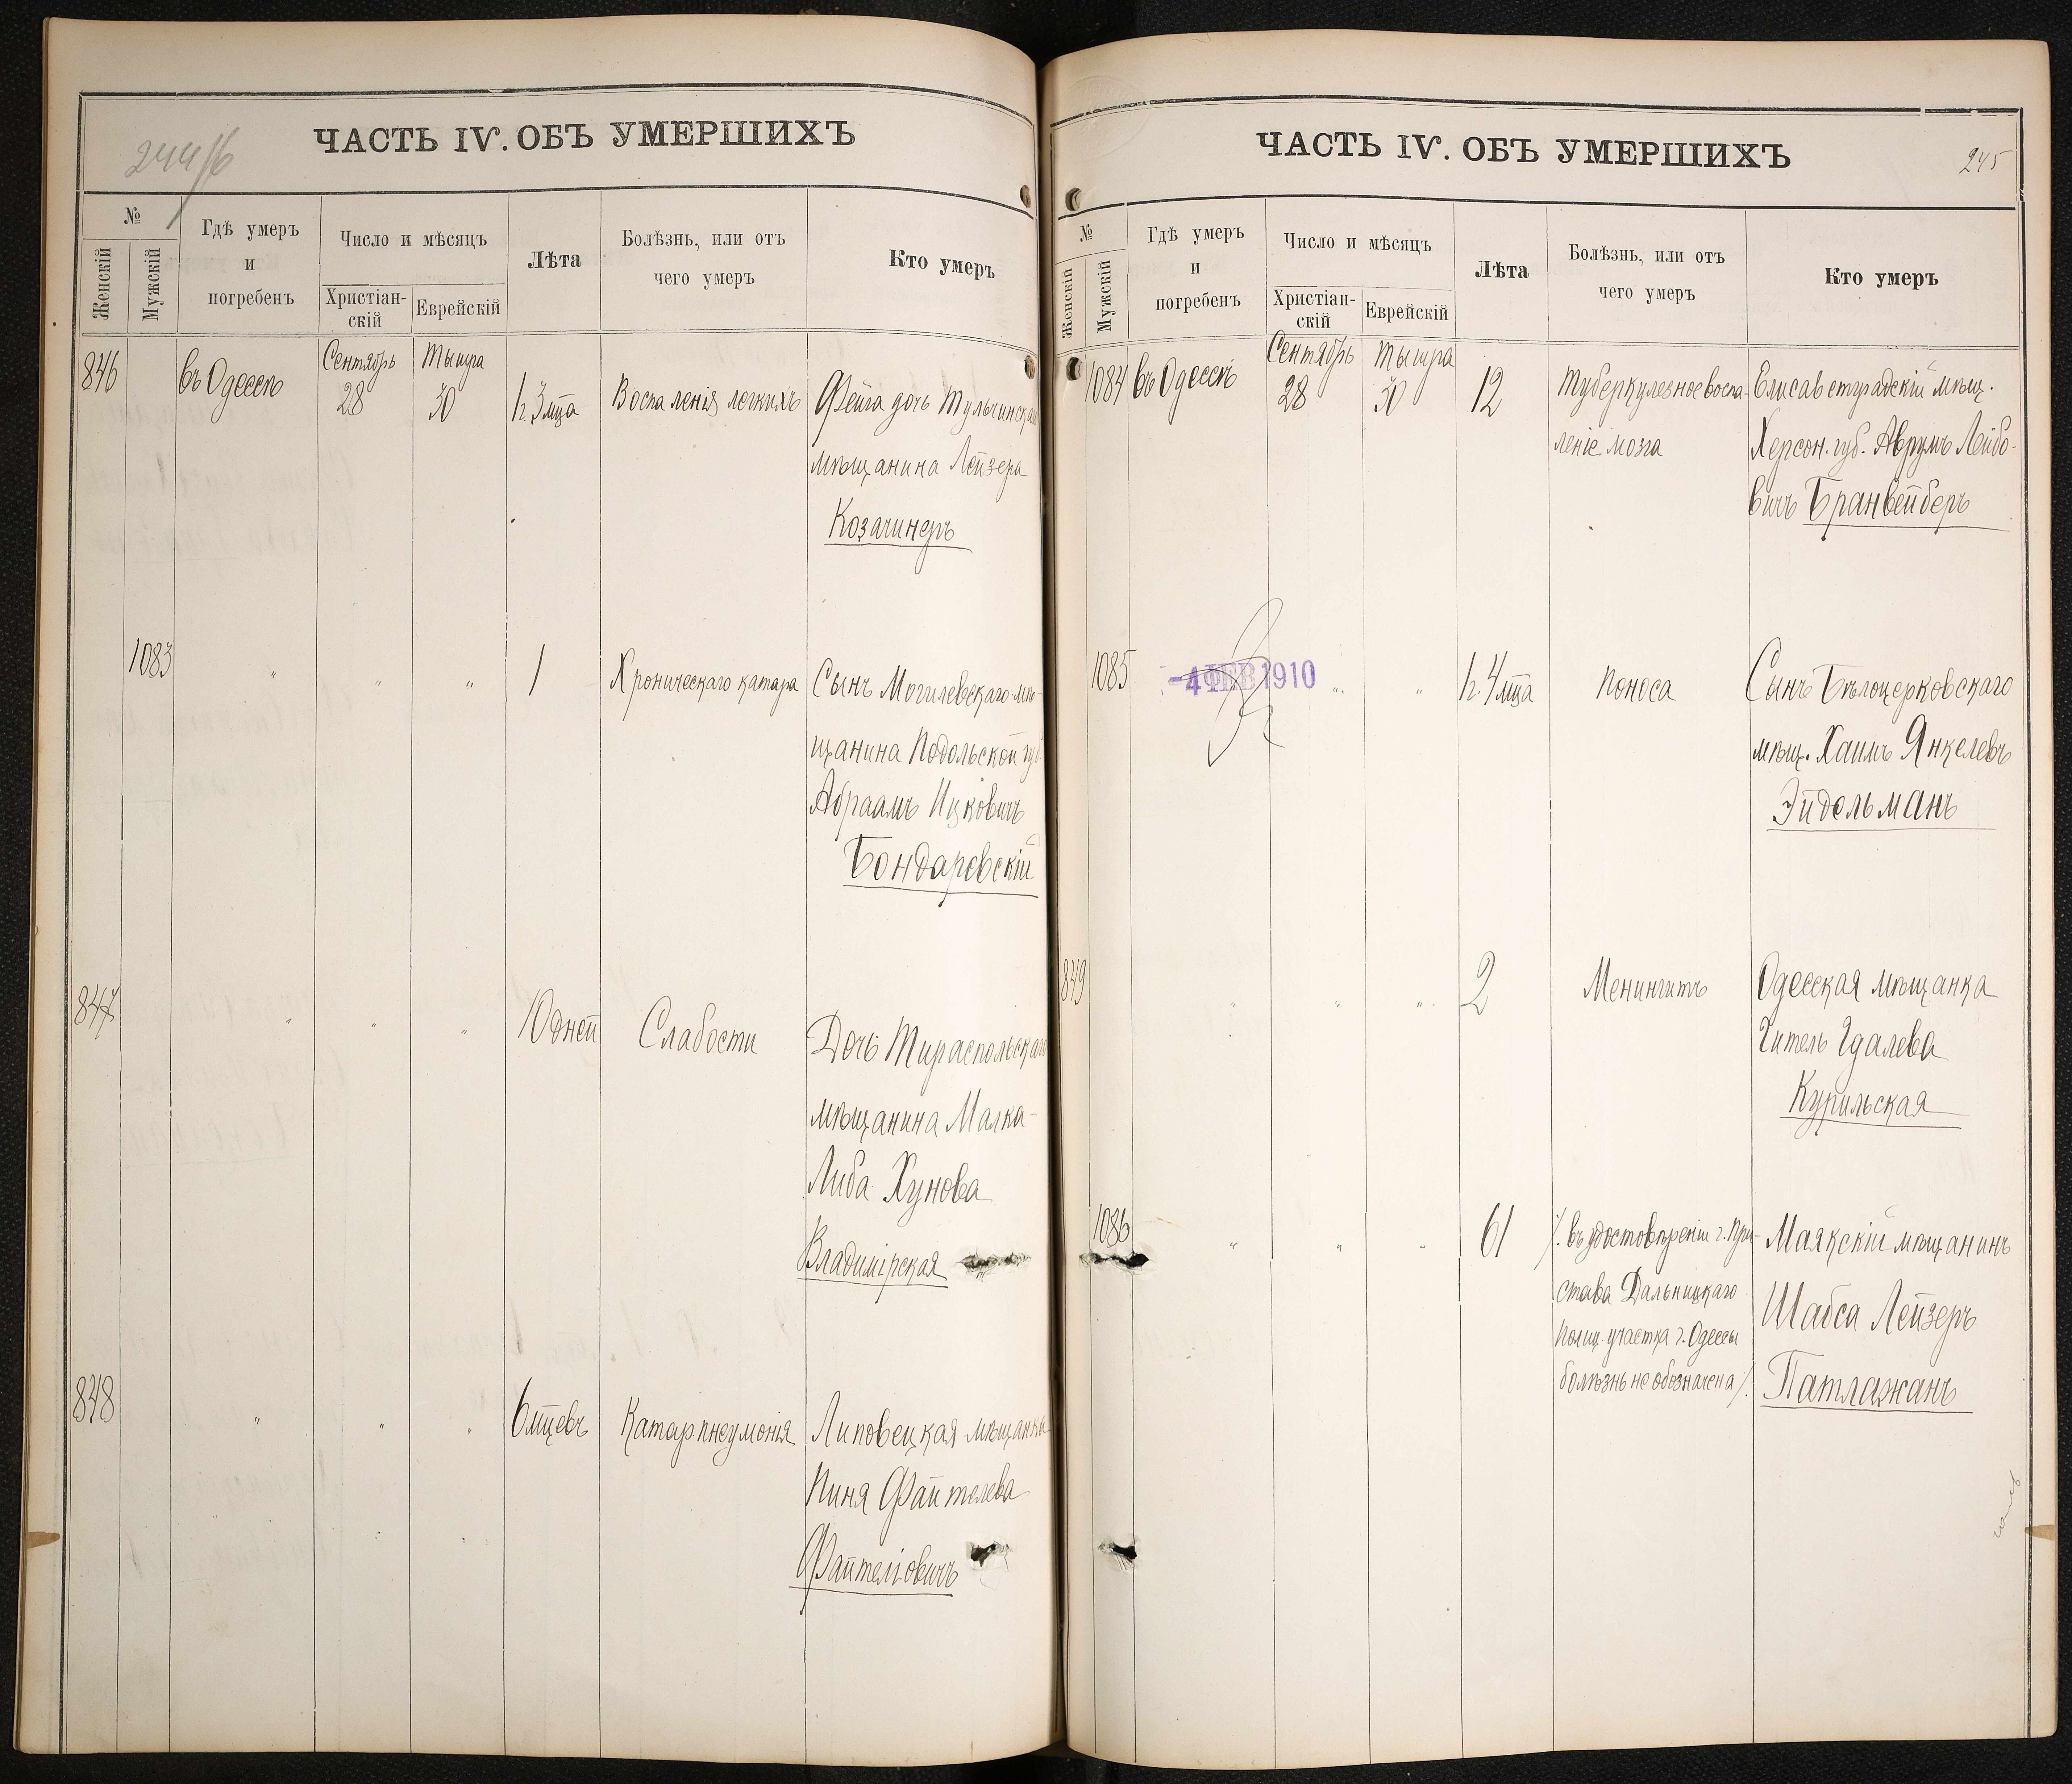 244/б
ЧАСТЬ IV. ОБЪ УМЕРШИХЪ
№
Женскій
Мужскій
Гдѣ умеръ
и
погребенъ
Число и мѣсяцъ
Христіан-
скій
Еврейскій
Лѣта
Болѣзнь, или отъ
чего умеръ
Кто умеръ
846
въ Одессѣ
Сентябрь
28
Тышра
30
1г. 3 мца
Воспаленія легкихъ
Фейга дочь Тульчинскаго
мѣщанина Лейзера
Козачинеръ
1083
" " "
1
Хроническаго катара
Сынъ Могилевскаго мѣ-
щанина Подольской губ.
Абраамъ Ицковичъ
Бондаревскій
847
" " "
10 дней
Слабости
Дочь Тираспольскаго
мѣщанина Малка-
Либа Хунова
Владимірская
848
" " "
6 мцевъ
Катар пнеумонія
Липовецкая мѣщанка
Пиня Файтелева
Файтеліовичъ
ЧАСТЬ IV. ОБЪ УМЕРШИХЪ
245
№
Женскій
Мужскій
Гдѣ умеръ
и
погребенъ
Число и мѣсяцъ
Христіан-
скій
Еврейскій
Лѣта
Болѣзнь, или отъ
чего умеръ
Кто умеръ
1084
въ Одессѣ
Сентябрь
28
Тышра
30
12
Туберкулезное воспа-
леніе мозга
Елисаветградскій мѣщ.
Херсон. губ. Аврумъ Лейбо-
вичъ Бранвейберъ
1085
-4 ФЕВ 1910
" "
1г. 4 мца
Поноса
Сынъ Бѣлоцерковскаго
мѣщ. Хаимъ Янкелевъ
Эйдельманъ
849
" " "
2
Менингитъ
Одесская мѣщанка
Гитель Гдалева
Курильская
1086
" " "
61
/. въ удостовѣреніи г. При-
става Дальницкаго
полиц. участка г. Одессы
болѣзнь не обозначена /.
Маякскій мѣщанинъ
Шабса Лейзеръ
Патлажанъ